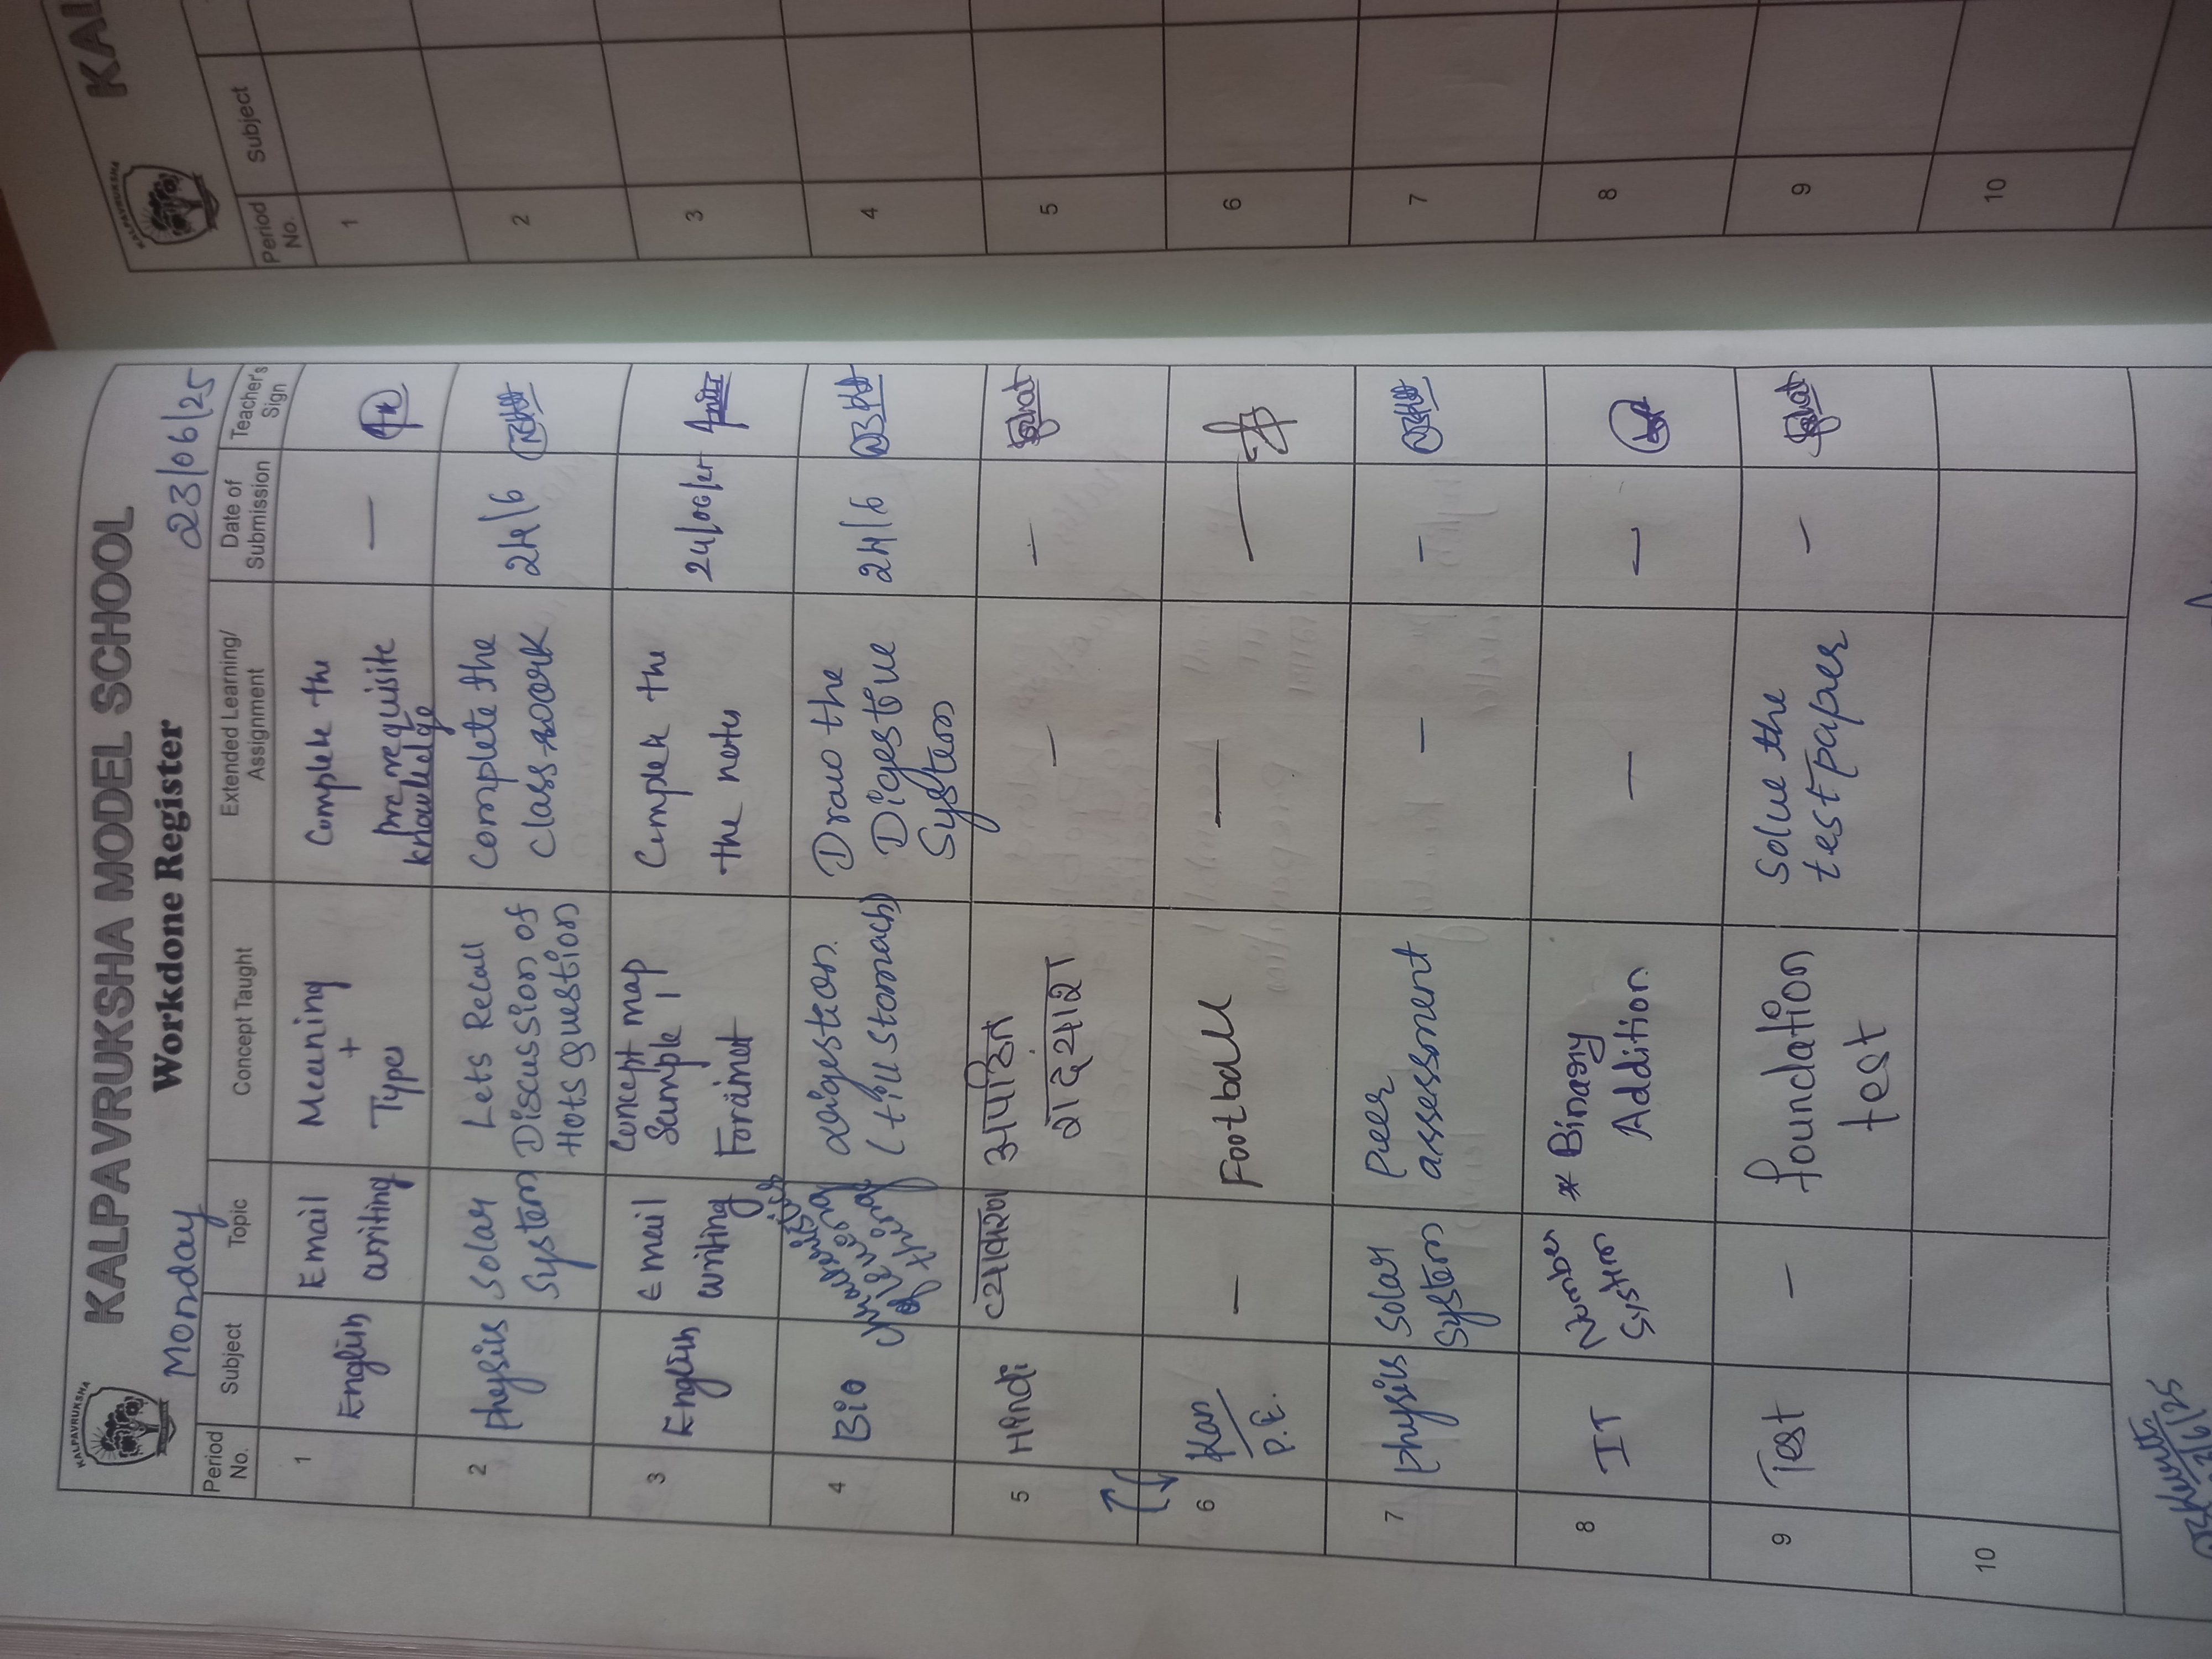 KALPAVRUKSHA
KALPAVRUKSHA MODEL SCHOOL
Workdone Register
Monday
23/06/25
Period No.
Subject
Topic
Concept Taught
Extended Learning/ Assignment
Date of Submission
Teacher's Sign
1
English
Email
writing
Meaning
+
Types
Complete the
prerequisite
knowledge
—
2
physics
Solar
System
Lets Recall
Discussion of
Hots question
Complete the
class work
24/6
3
English
Email
writing
Concept map
Sample
Foramat
Complete the
the notes
24/06/25
4
Bio
digestion.
(till stomach)
Draw the
Digestive
System
24/6
5
Hindi
व्याकरण
अपठित
गद्यांश
—
—
6
Kan
P.E.
—
Football
—
—
7
physics
Solar
System
Peer
assessment
—
—
8
IT
Number
System
* Binary
Addition
—
—
9
Test
—
foundation
test
Solve the
test paper
—
10
KALPAVRUKSHA
KAL
Period No.
Subject
1
2
3
4
5
6
7
8
9
10